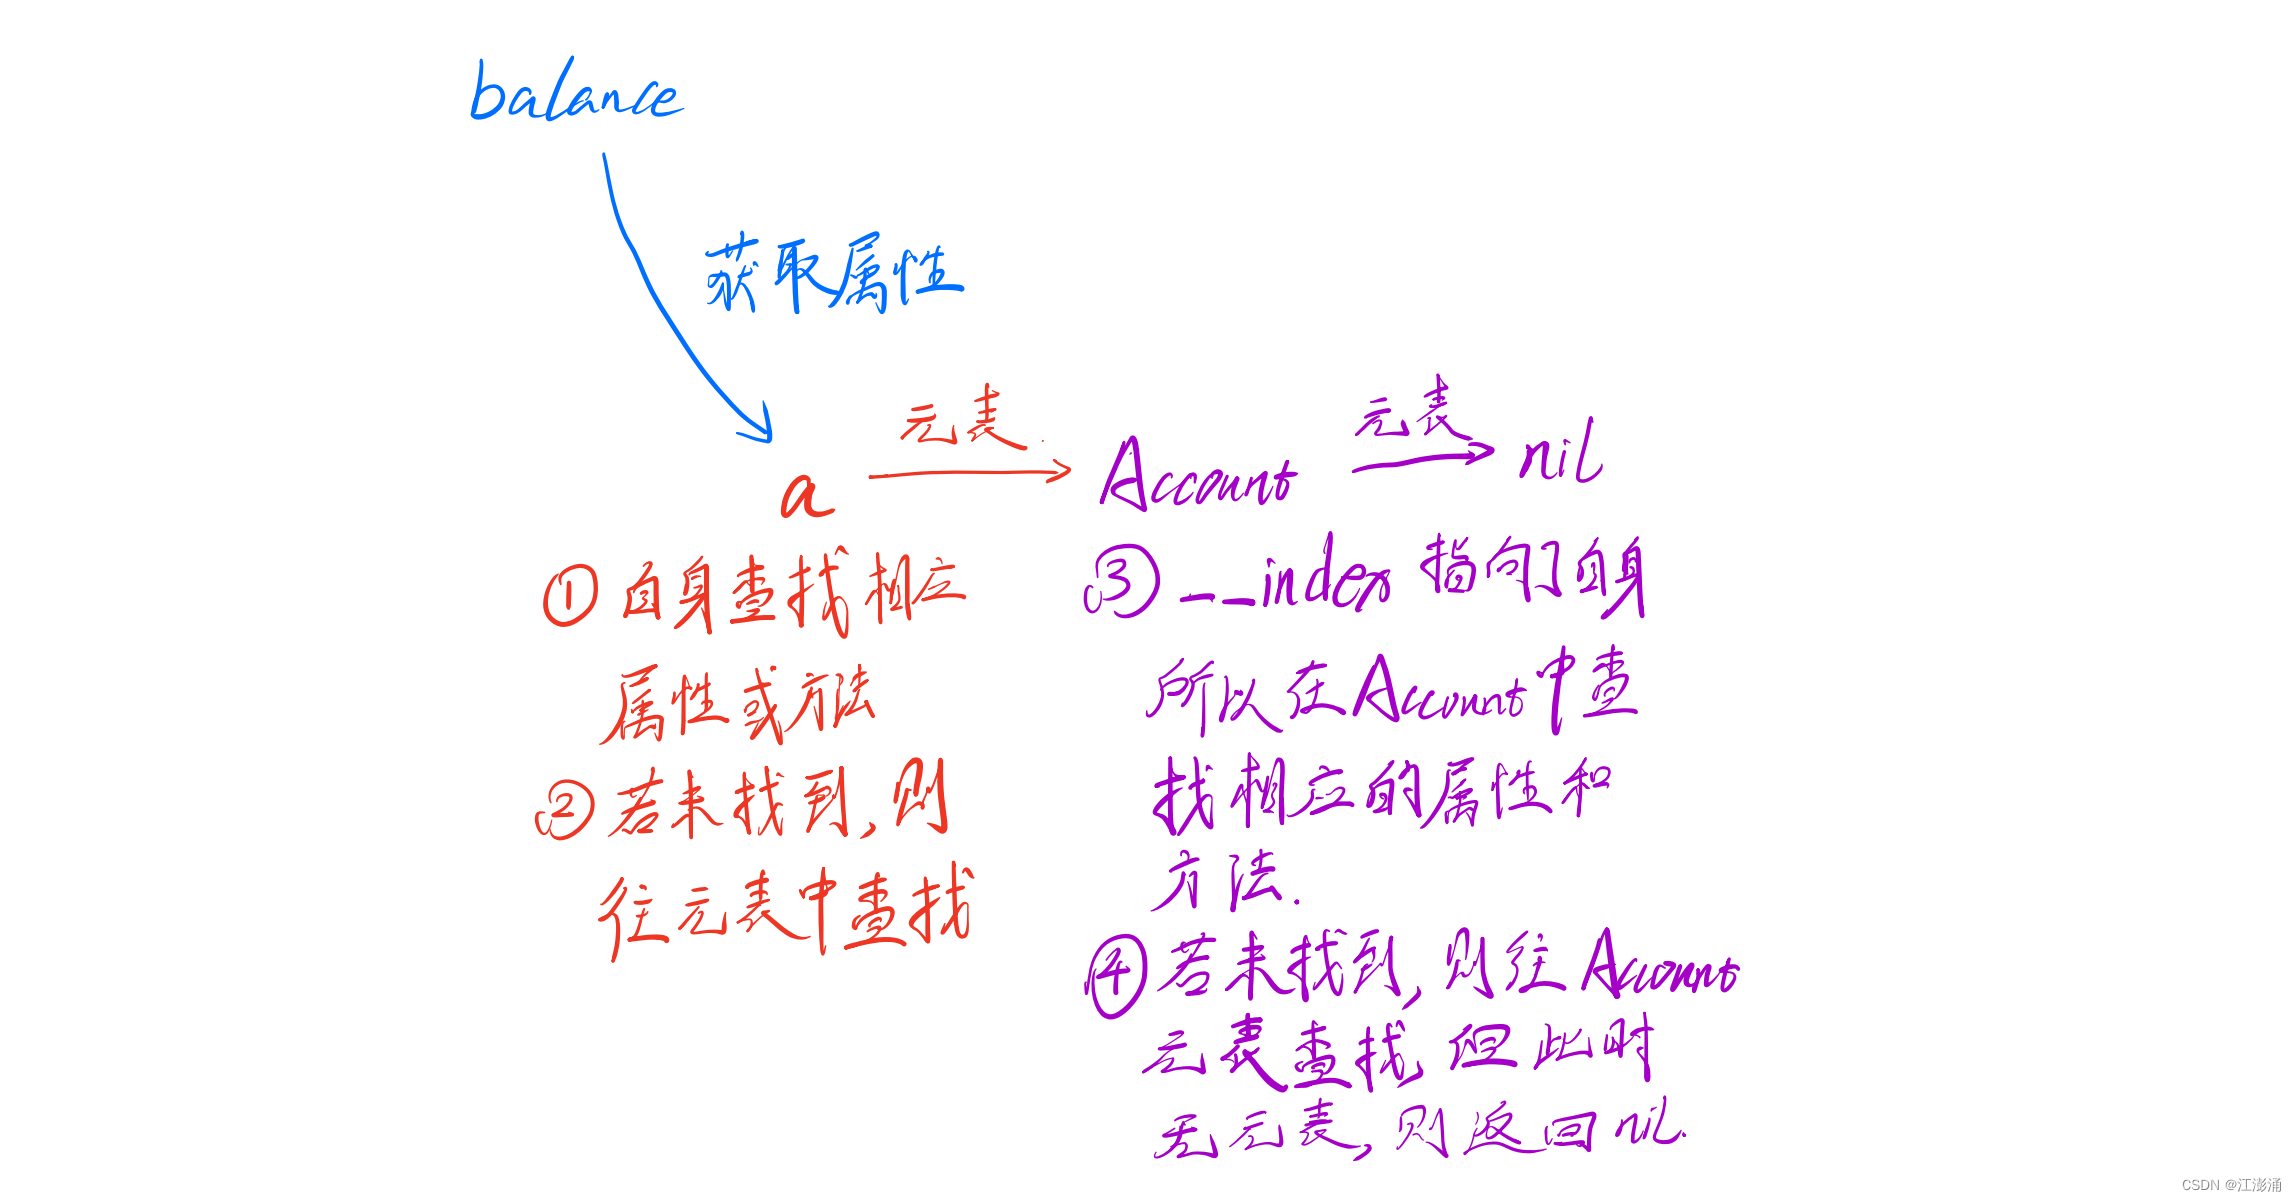 balance
获取属性
元表
元表
a
Account
nil
① 自身查找相应
属性或方法
② 若未找到,则
往元表中查找
③ __index 指向了自身
所以在Account中查
找相应的属性和
方法.
④ 若未找到,则往Account
元表查找,但此时
无元表,则返回nil.
CSDN @江澎涌